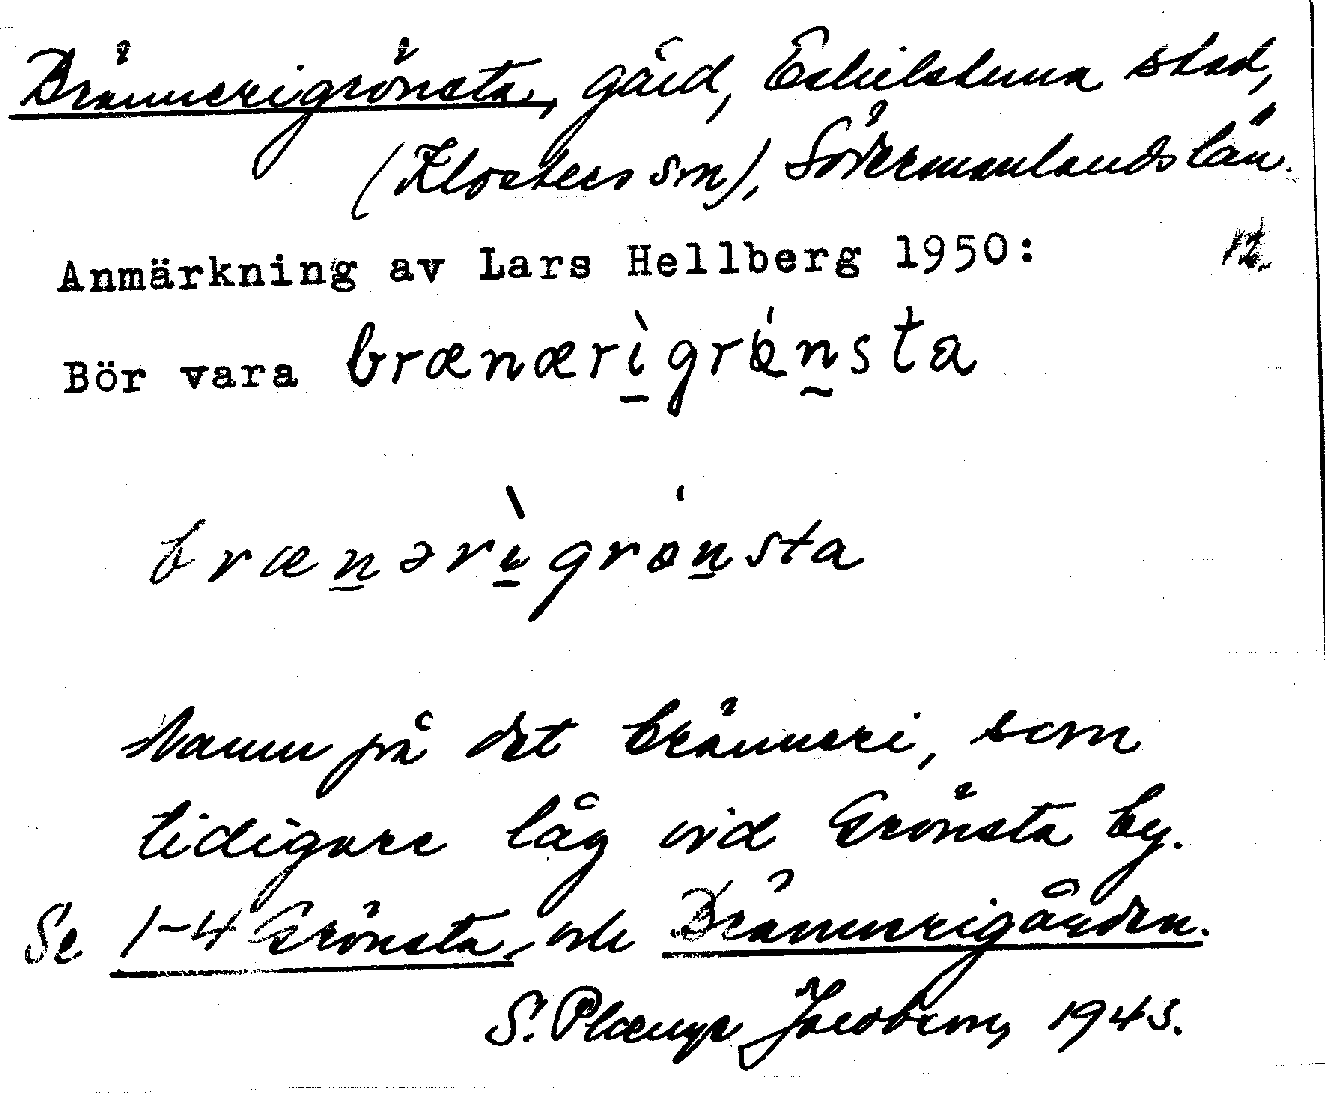 Brännerigrönsta, gård, Eskilstuna stad,
(Klosters sn), Södermanlands län.
Anmärkning av Lars Hellberg 1950:
Bör vara brænærìgrǿnsta
brænərìgrǿnsta
Namn på det bränneri, som
tidigare låg vid Grönsta by.
Se 1-4 Grönsta, och Bränneri­gården.
S. Jacobson, 1943.